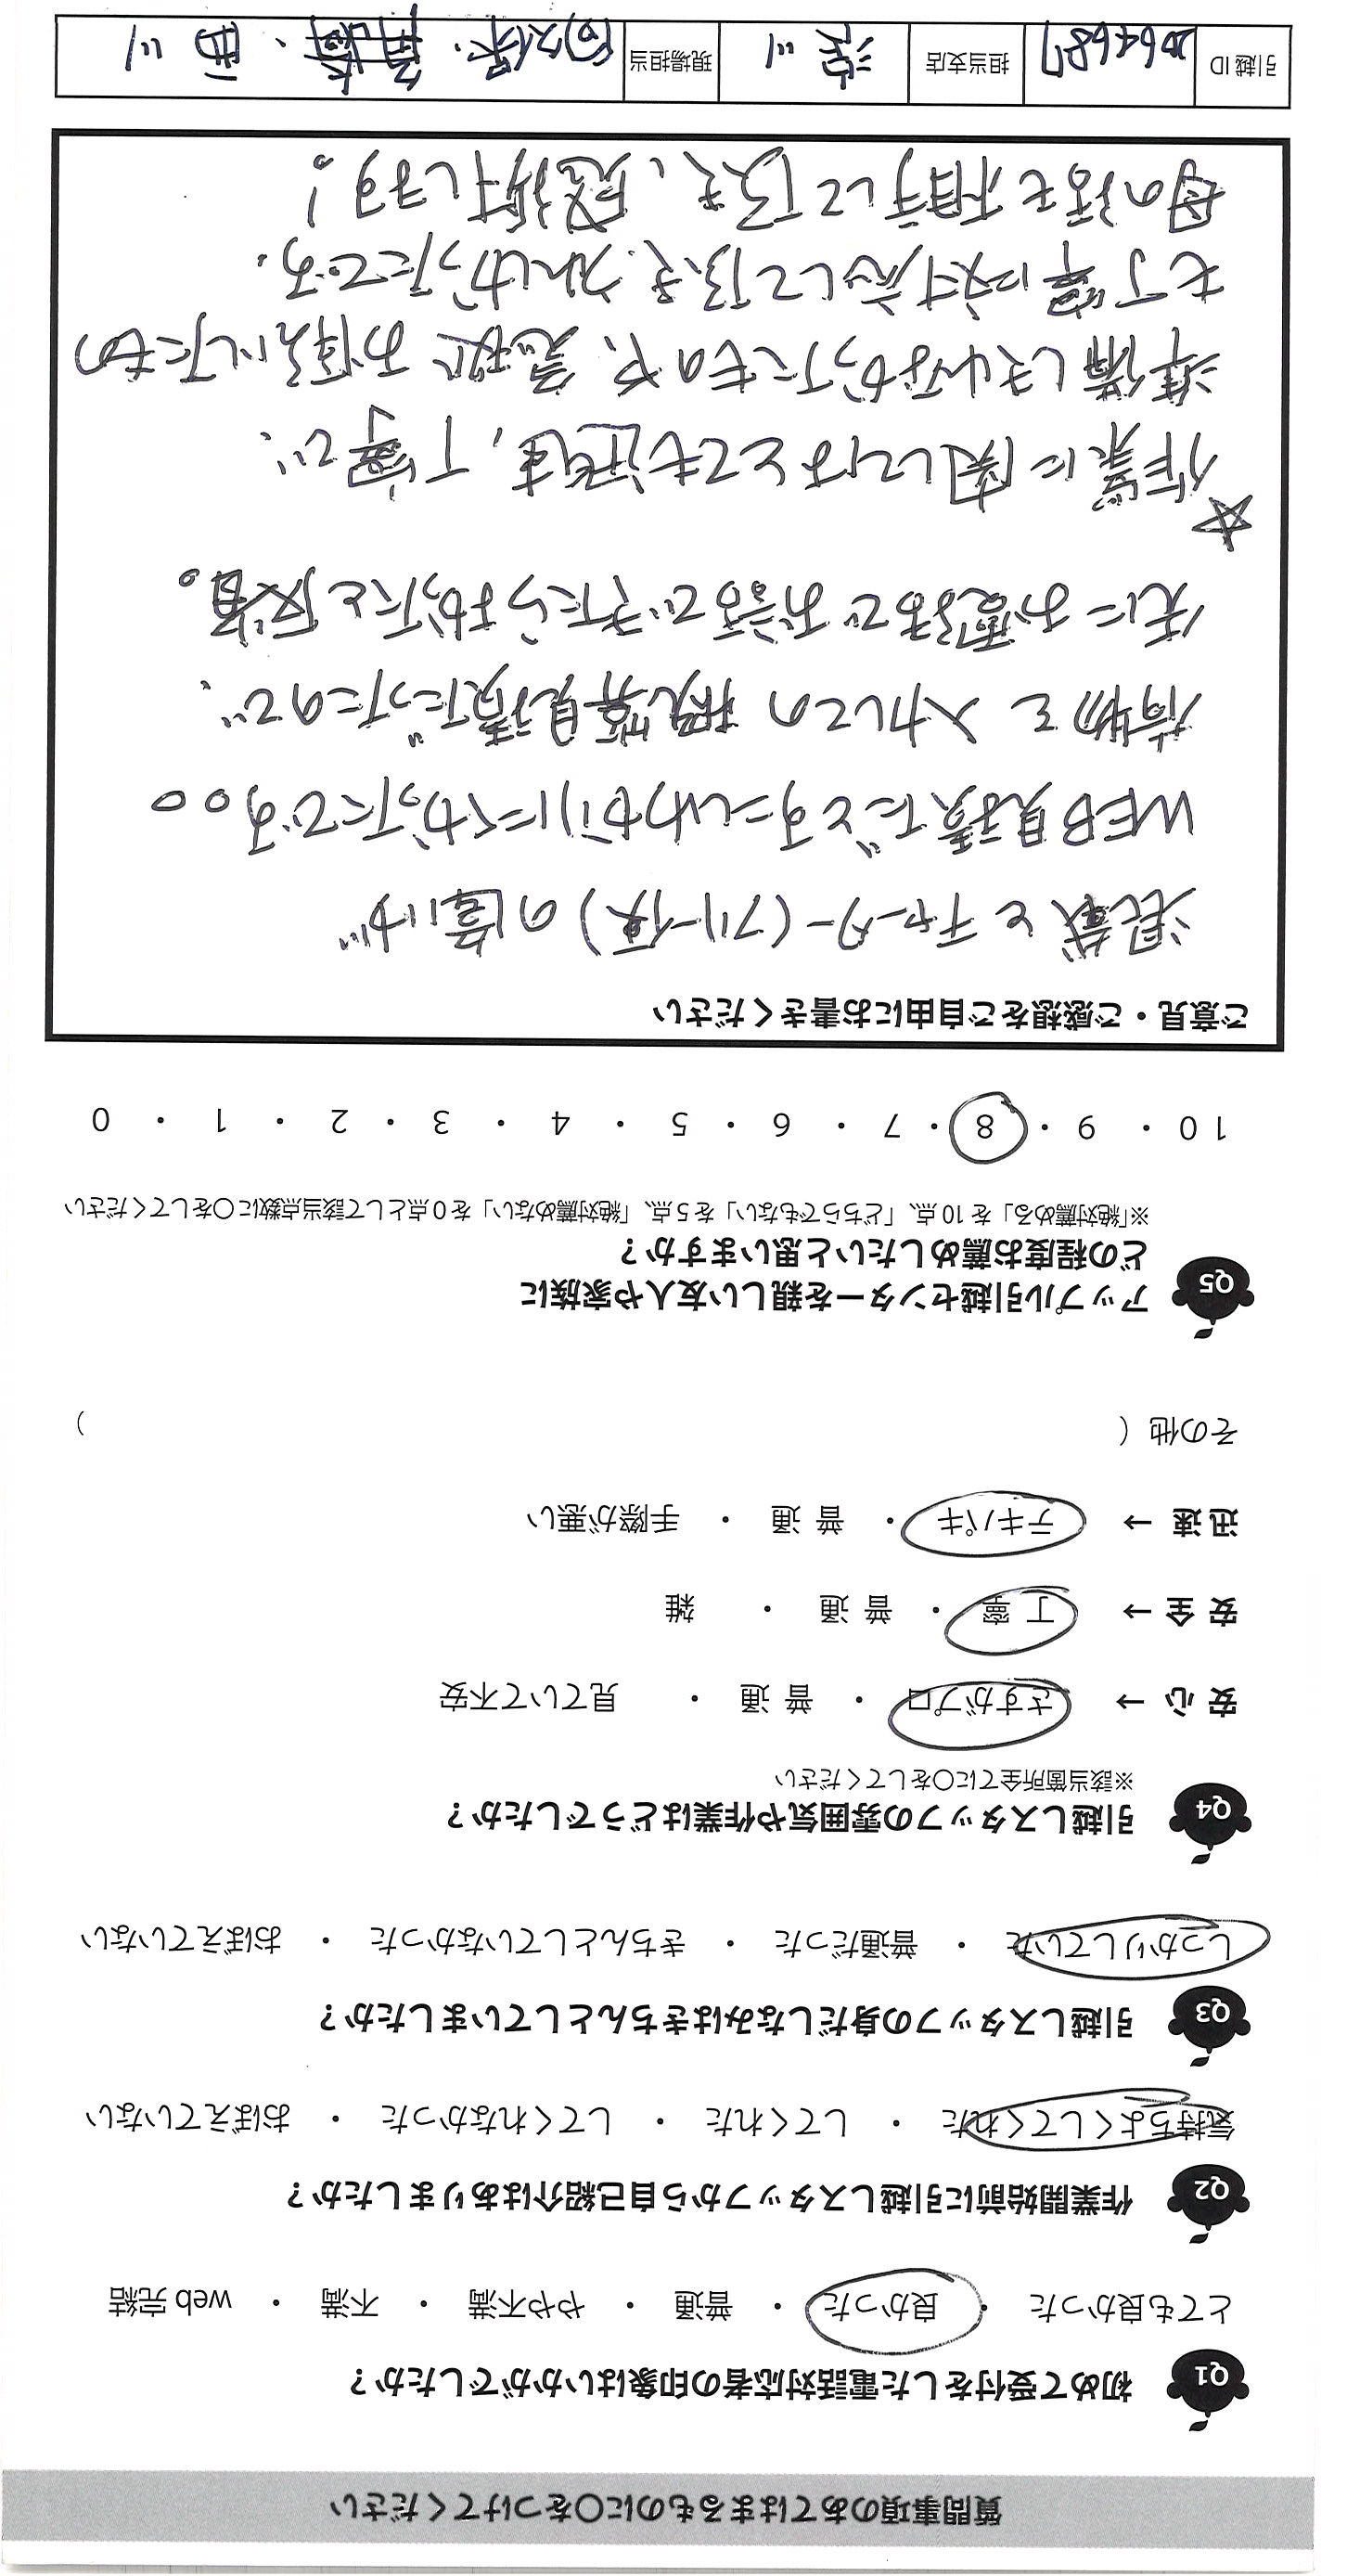 質問事項のあてはまるものに〇をつけてください
Q1 初めて受付をした電話対応者の印象はいかがでしたか？
とても良かった ・ 良かった ・ 普通 ・ やや不満 ・ 不満 ・ web 完結
Q2 作業開始前に引越しスタッフから自己紹介はありましたか？
気持ちよくしてくれた ・ してくれた ・ してくれなかった ・ おぼえていない
Q3 引越しスタッフの身だしなみはきちんとしていましたか？
しっかりしていた ・ 普通だった ・ きちんとしていなかった ・ おぼえていない
Q4 引越しスタッフの雰囲気や作業はどうでしたか？
※該当箇所全てに〇をしてください
安 心 → さすがプロ ・ 普 通 ・ 見ていて不安
安 全 → 丁 寧 ・ 普 通 ・ 雑
迅 速 → テキパキ ・ 普 通 ・ 手際が悪い
その他 （ ）
Q5 アップル引越センターを親しい友人や家族に
どの程度お薦めしたいと思いますか？
※「絶対薦める」を 10 点、「どちらでもない」を 5 点、「絶対薦めない」を 0 点として該当点数に〇をしてください
10 ・ 9 ・ 8 ・ 7 ・ 6 ・ 5 ・ 4 ・ 3 ・ 2 ・ 1 ・ 0
ご意見・ご感想をご自由にお書きください
混載とチャーター(フリー便)の違いが
WEB見積だとすこしわかりにくかったです。。
荷物を入力しての概算見積だったので、
先にお電話でお話できたらよかったと反省。
☆
作業に関してはとても迅速、丁寧で、
準備しきれなかったものや、急遽お伝えしたもの
も丁寧に対応して頂き、うれしかったです。
母の話も相手して頂き、感謝します！
引越 ID 2064687 担当支店 淀川 現場担当 阿久保、 、西川